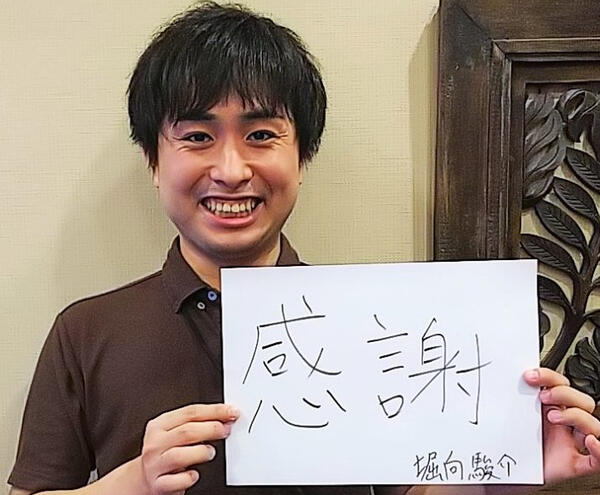 感謝
堀向駿介